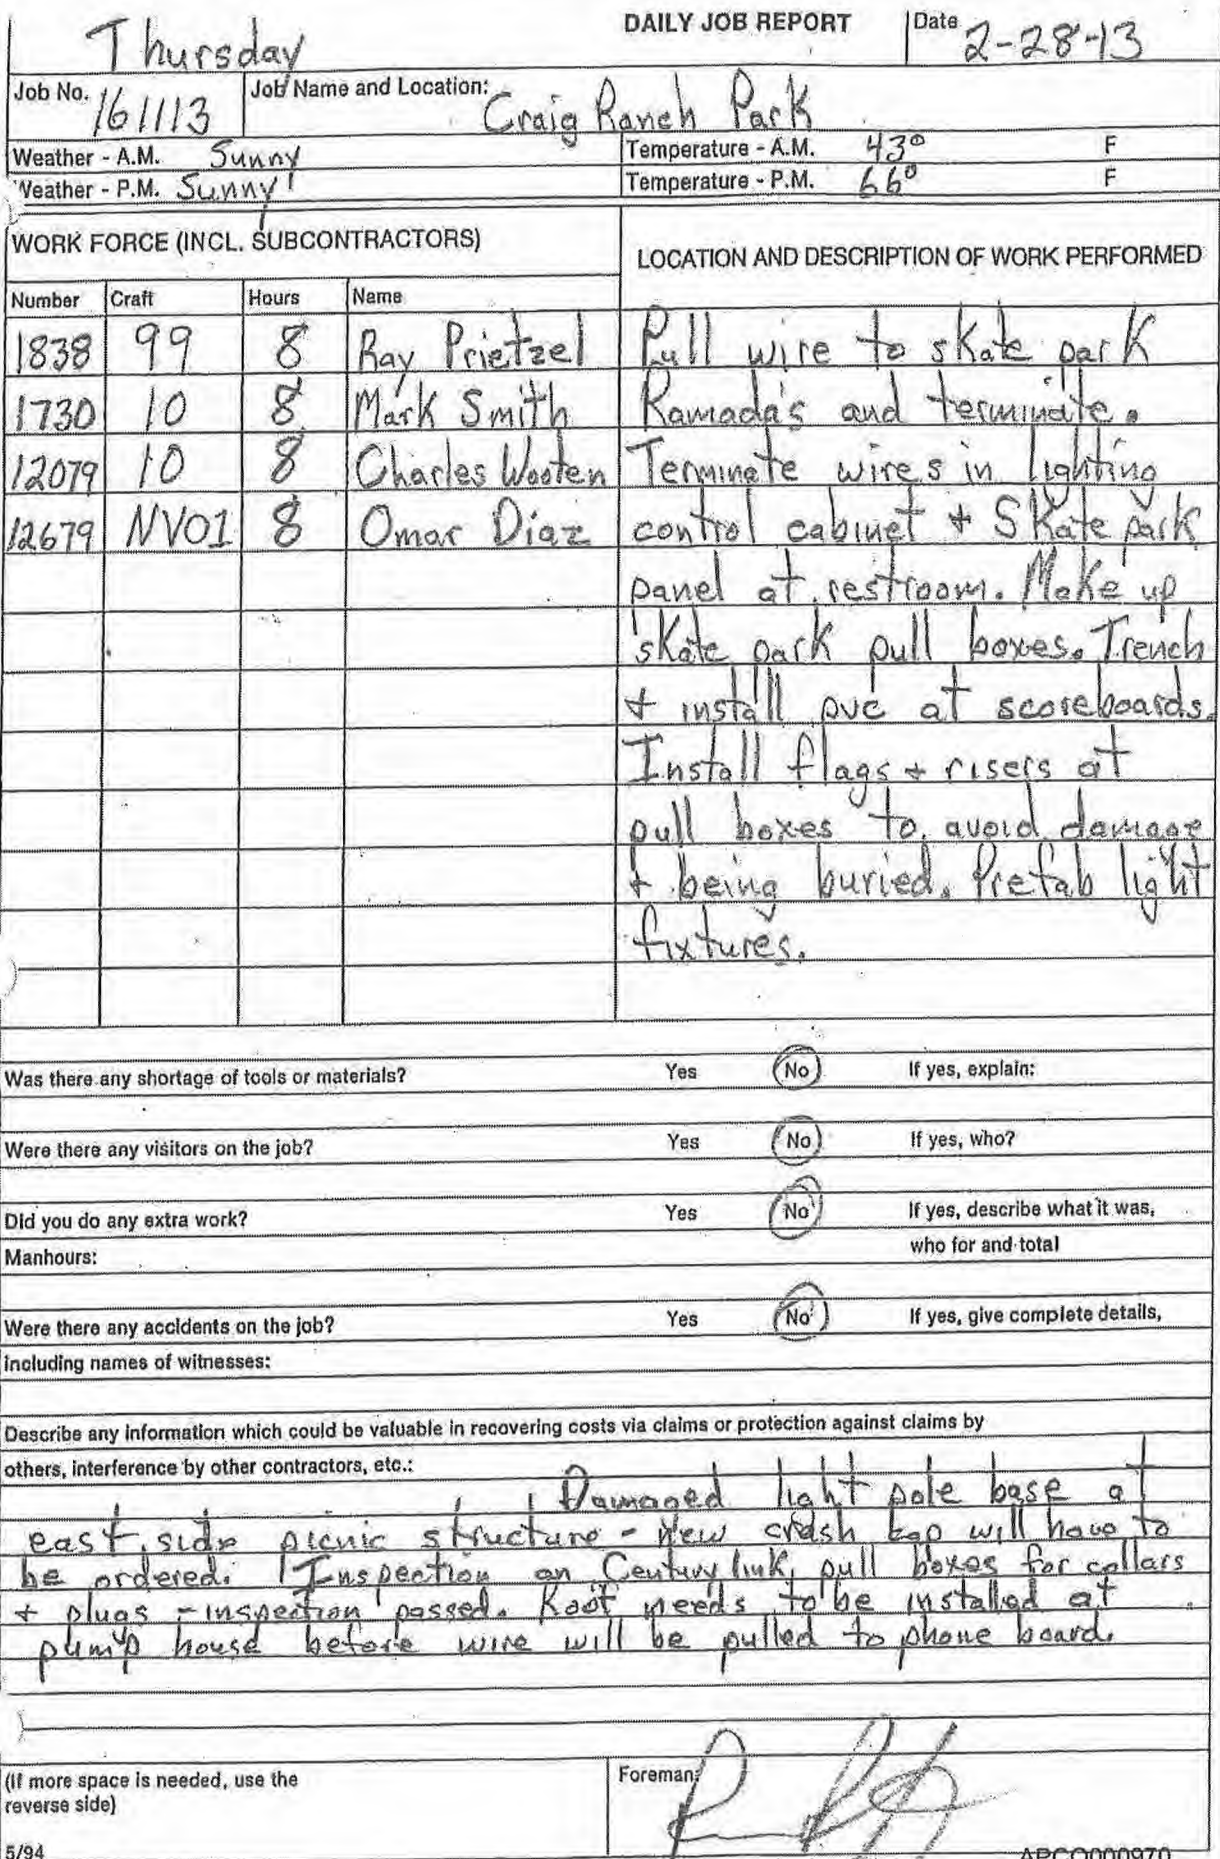 Thursday
DAILY JOB REPORT
Date 2-28-13
Job No. 161113
Job Name and Location: Craig Ranch Park
Weather - A.M. Sunny
Temperature - A.M. 43° F
Weather - P.M. Sunny
Temperature - P.M. 66° F
WORK FORCE (INCL. SUBCONTRACTORS)
LOCATION AND DESCRIPTION OF WORK PERFORMED
Number Craft Hours Name
1838 99 8 Ray Prietzel
Pull wire to skate park
1730 10 8 Mark Smith
Ramada's and terminate.
12079 10 8 Charles Wooten
Terminate wires in lighting
12679 NV01 8 Omar Diaz
control cabinet + Skate park
panel at restroom. Make up
skate park pull boxes. Trench
+ install pvc at scoreboards.
Install flags + risers at
pull boxes to avoid damage
+ being buried. Prefab light
fixtures.
Was there any shortage of tools or materials? Yes No If yes, explain:
Were there any visitors on the job? Yes No If yes, who?
Did you do any extra work? Yes No If yes, describe what it was,
who for and total
Manhours:
Were there any accidents on the job? Yes No If yes, give complete details,
including names of witnesses:
Describe any information which could be valuable in recovering costs via claims or protection against claims by
others, interference by other contractors, etc.:
Damaged light pole base at
east side picnic structure - New crash will have to
be ordered. Inspection on Century link pull boxes for collars
+ plugs - inspection passed. Roof needs to be installed at
pump house before wire will be pulled to phone board.
(If more space is needed, use the
reverse side)
Foreman:
5/94
APCO000970